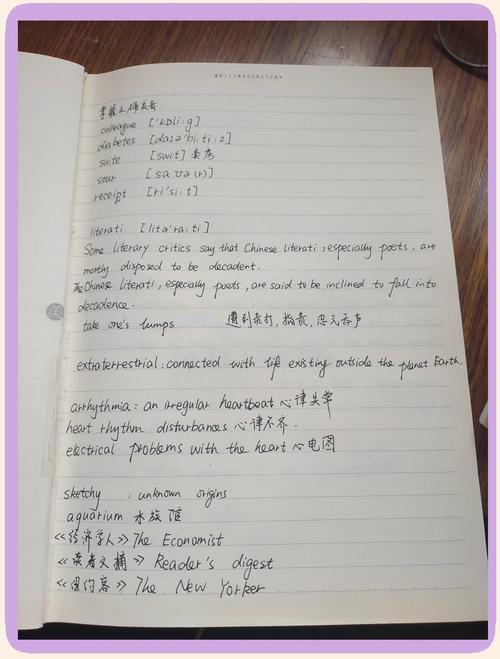 WRITINGOURSTORY
掌握正确发音:
colleague ['kɒli:g]
diabetes [daɪə'bi:ti:z]
suite [swi:t] 套房
sour [saʊə(r)]
receipt [rɪ'si:t]
literati [lɪtə'ra:ti]
Some literary critics say that Chinese literati, especially poets, are
mostly disposed to be decadent.
The Chinese literati, especially poets, are said to be inclined to fall into
decadence.
take one's lumps 遭到亲打, 指责, 忍气吞声
extraterrestrial: connected with life existing outside the planet Earth.
arrhythmia: an irregular heartbeat 心律失常
heart rhythm disturbances 心律不齐.
electrical problems with the heart 心电图
sketchy : unknown origins
aquarium 水族馆
《经济学人》The Economist
《读者文摘》Reader's digest
《纽约客》The New Yorker